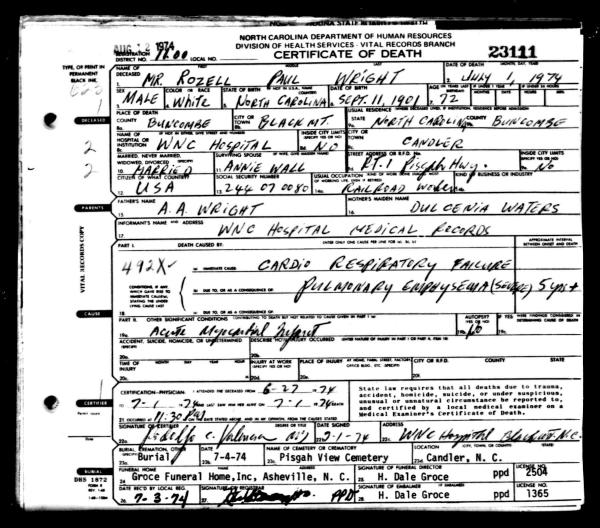 NORTH CAROLINA DEPARTMENT OF HUMAN RESOURCES
AUG 12 1974 DIVISION OF HEALTH SERVICES - VITAL RECORDS BRANCH
REGISTRATION DISTRICT NO. 1100 LOCAL NO. CERTIFICATE OF DEATH 23111
TYPE, OR PRINT IN PERMANENT BLACK INK
NAME OF DECEASED MR. ROZELL PAUL WRIGHT DATE OF DEATH 2. JULY 1, 1974
SEX MALE COLOR OR RACE White STATE OF BIRTH NORTH CAROLINA DATE OF BIRTH SEPT. 11, 1901 72
DECEASED
PLACE OF DEATH COUNTY BUNCOMBE CITY OR TOWN BLACK MT. USUAL RESIDENCE STATE NORTH CAROLINA COUNTY BUNCOMBE
NAME OF HOSPITAL OR INSTITUTION WNC HOSPITAL INSIDE CITY LIMITS NO CITY OR TOWN CANDLER
MARRIED, NEVER MARRIED, WIDOWED, DIVORCED MARRIED SURVIVING SPOUSE ANNIE WALL STREET ADDRESS OR R.F.D. No. RT. 1 Pisgah Hwy. INSIDE CITY LIMITS No
CITIZEN OF WHAT COUNTRY USA SOCIAL SECURITY NUMBER 244 07 0080 USUAL OCCUPATION RAILROAD KIND OF BUSINESS OR INDUSTRY
PARENTS
FATHER'S NAME A. A. WRIGHT MOTHER'S MAIDEN NAME DULCENIA WATERS
INFORMANT'S NAME AND ADDRESS WNC HOSPITAL MEDICAL RECORDS
VITAL RECORDS COPY
PART I. DEATH CAUSED BY: ENTER ONLY ONE CAUSE PER LINE APPROXIMATE INTERVAL BETWEEN ONSET AND DEATH
492X IMMEDIATE CAUSE CARDIO RESPIRATORY FAILURE
CONDITIONS, IF ANY, WHICH GAVE RISE TO IMMEDIATE CAUSE, STATING THE UNDERLYING CAUSE LAST
DUE TO, OR AS A CONSEQUENCE OF: PULMONARY EMPHYSEMA (SEVERE) 5 yrs +
DUE TO, OR AS A CONSEQUENCE OF:
CAUSE
PART II. OTHER SIGNIFICANT CONDITIONS Acute Myocardial Infarct AUTOPSY? NO
ACCIDENT, SUICIDE, HOMICIDE, OR UNDETERMINED DESCRIBE HOW INJURY OCCURRED
TIME OF INJURY MONTH DAY YEAR HOUR INJURY AT WORK PLACE OF INJURY CITY OR R.F.D. COUNTY STATE
CERTIFICATION-PHYSICIAN: I ATTENDED THE DECEASED FROM 6-27-74
TO 7-1-74 AND LAST SAW HIM/HER ALIVE ON 7-1-74
11:30 PM
State law requires that all deaths due to trauma, accident, homicide, suicide, or under suspicious, unusual or unnatural circumstance be reported to, and certified by a local medical examiner on a Medical Examiner's Certificate of Death.
CERTIFIER
SIGNATURE OF CERTIFIER DATE SIGNED 7-1-74 ADDRESS WNC Hospital Black Mt N.C.
BURIAL, CREMATION, OTHER Burial DATE 7-4-74 NAME OF CEMETERY OR CREMATORY Pisgah View Cemetery Candler, N. C.
BURIAL
FUNERAL HOME Groce Funeral Home, Inc, Asheville, N. C. SIGNATURE OF FUNERAL DIRECTOR H. Dale Groce ppd LICENSE NO. 2504
DHS 1872
DATE REC'D BY LOCAL REG. 7-3-74 PPD SIGNATURE OF EMBALMER H. Dale Groce ppd LICENSE NO. 1365